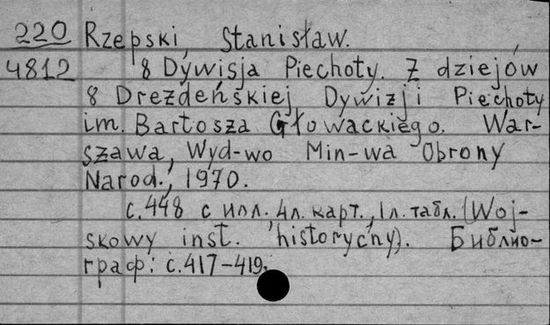 220 Rzepski, Stanisław.
4812 8 Dywisja Piechoty. Z dziejów
8 Drezdeńskiej Dywizji Piechoty
im. Bartosza Głowackiego. War-
szawa, Wyd-wo Min-wa Obrony
Narod., 1970.
с.448 с илл. 4л. карт., 1л. табл. (Woj-
skowy inst. historycny). Библио-
граф: с.417-419.